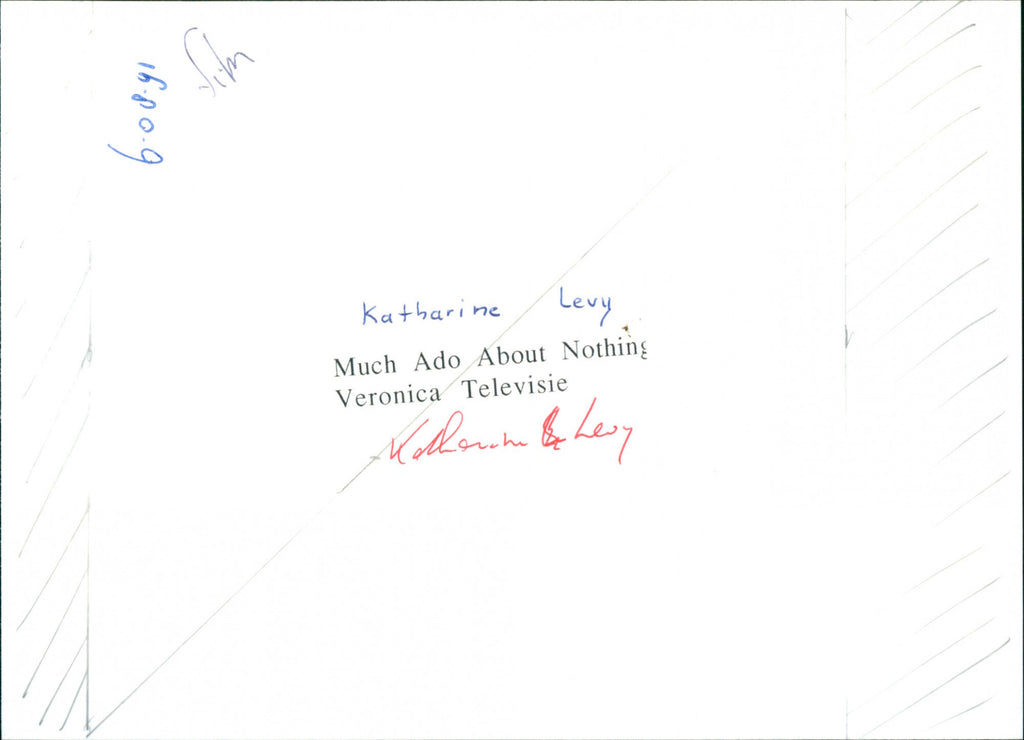 6.08.91
Film
Katharine Levy
Much Ado About Nothing
Veronica Televisie
Katharine Levy